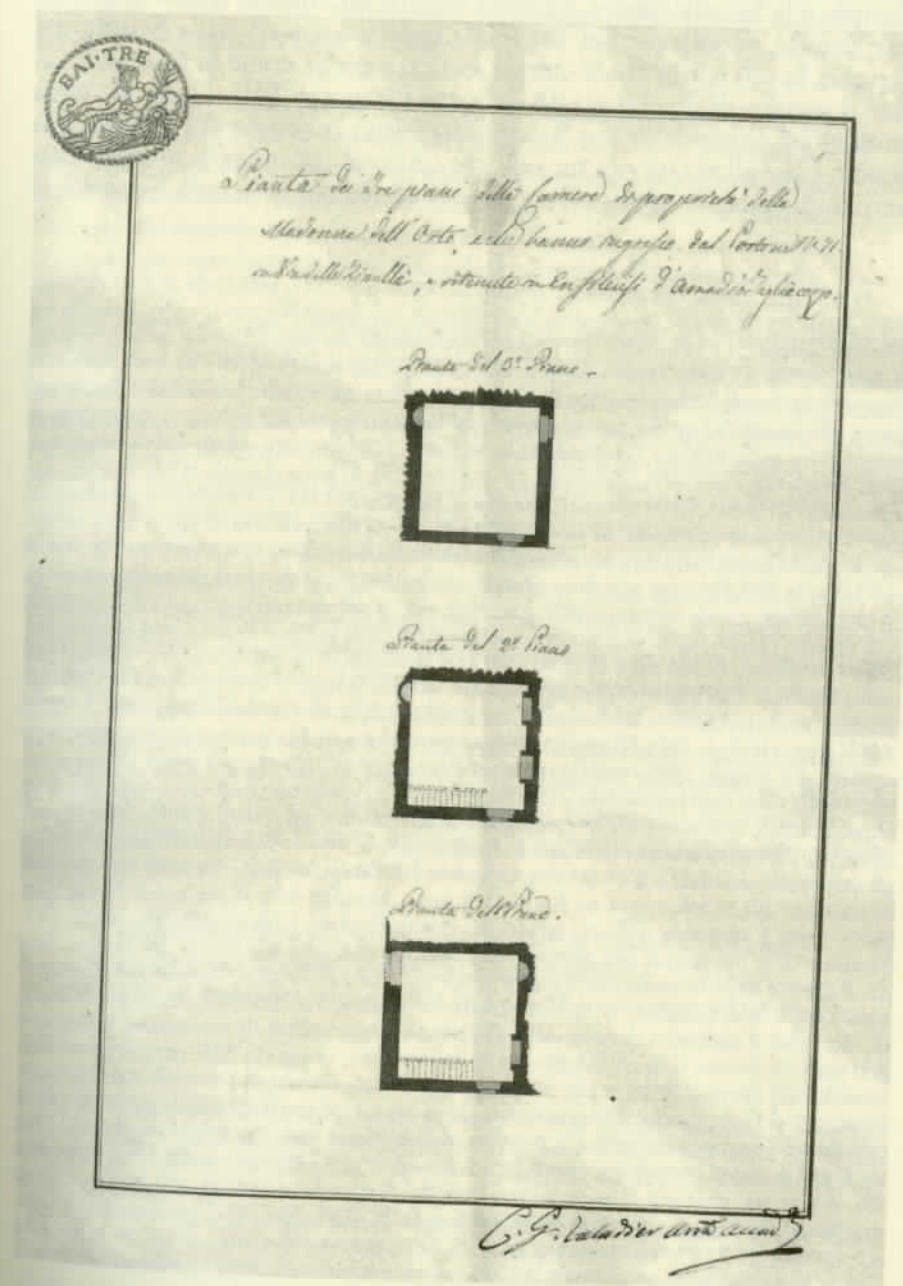 BAI·TRE
Pianta dei tre piani delle Camere di proprietà della
Madonna dell' Orto, e che hanno ingresso dal Portone N. 71.
in Via delle, e ritenute in Enfiteusi d'
Pianta del 3° Piano.
Pianta del 2° Piano
Pianta del 1° Piano.
C. G. Valadier Arch